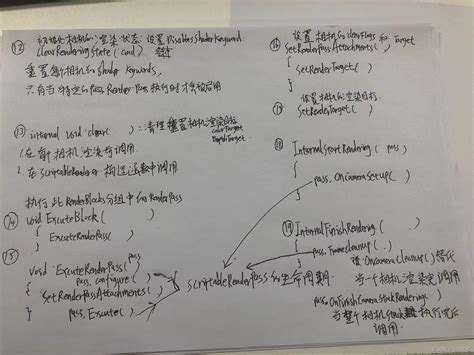 ⑫ 初始化相机的渲染状态. 设置 DisableShaderKeyword.
ClearRenderingState( cmd )
重置每相机的 Shader Keywords,
只有当特定的 Pass Render Pass 执行时才被启用
⑬ internal void Clear( ) : 清理 重置相机渲染目标
colorTarget
DepthTarget
1. 在每相机渲染前调用
2. 在 ScriptableRenderer 构造函数中调用
执行此 RenderBlocks 分组中的 RenderPass
⑭ void ExcuteBlock( )
{
ExcuteRenderPass( )
}
⑮
void ExcuteRenderPass( pass
{ pass.configure( )
SetRenderPassAttachments( )
pass.Excute( )
}
ScriptableRenderPass 的生命周期.
设置 相机的 clearFlags 和 Target
⑯ SetRenderPassAttachments( )
{
SetRenderTarget( )
}
设置相机的渲染目标
⑰ SetRenderTarget( )
⑱ InternalStartRendering( pass )
{
pass.OnCameraSetup( )
}
⑲ InternalFinishRendering( )
{
pass.FrameCleanup( )
被 OnCameraCleanup() 替代
当一个相机渲染完调用
pass.OnFinishCameraStackRendering( )
当整个相机 Stack 执行完后
调用.
}